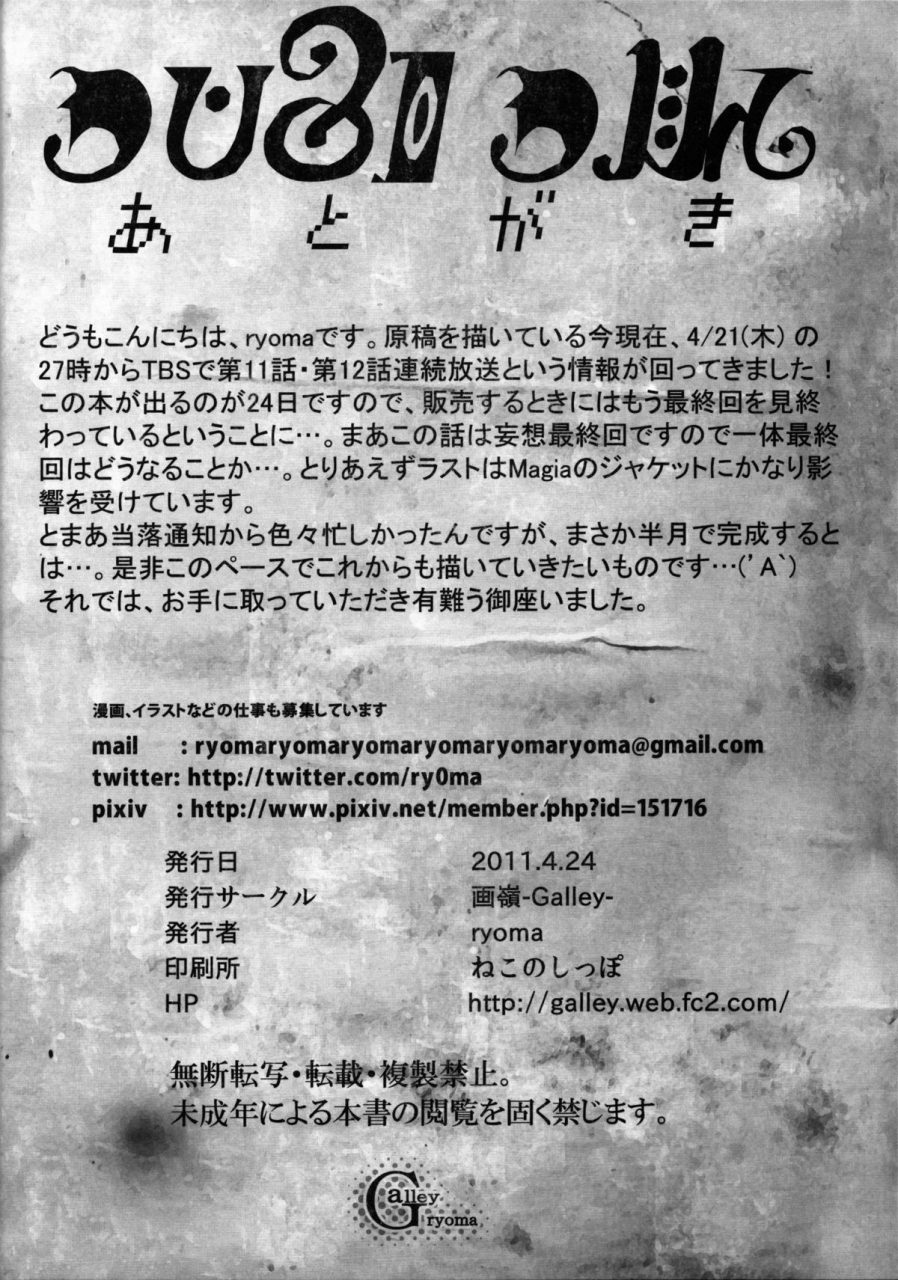 あとがき
どうもこんにちは、ryomaです。原稿を描いている今現在、4/21(木) の
27時からTBSで第11話・第12話連続放送という情報が回ってきました！
この本が出るのが24日ですので、販売するときにはもう最終回を見終
わっているということに…。まあこの話は妄想最終回ですので一体最終
回はどうなることか…。とりあえずラストはMagiaのジャケットにかなり影
響を受けています。
とまあ当落通知から色々忙しかったんですが、まさか半月で完成すると
は…。是非このペースでこれからも描いていきたいものです…('A`)
それでは、お手に取っていただき有難う御座いました。
漫画、イラストなどの仕事も募集しています
mail : ryomaryomaryomaryomaryomaryoma@gmail.com
twitter: http://twitter.com/ry0ma
pixiv : http://www.pixiv.net/member.php?id=151716
発行日 2011.4.24
発行サークル 画嶺-Galley-
発行者 ryoma
印刷所 ねこのしっぽ
HP http://galley.web.fc2.com/
無断転写・転載・複製禁止。
未成年による本書の閲覧を固く禁じます。
Galley
ryoma